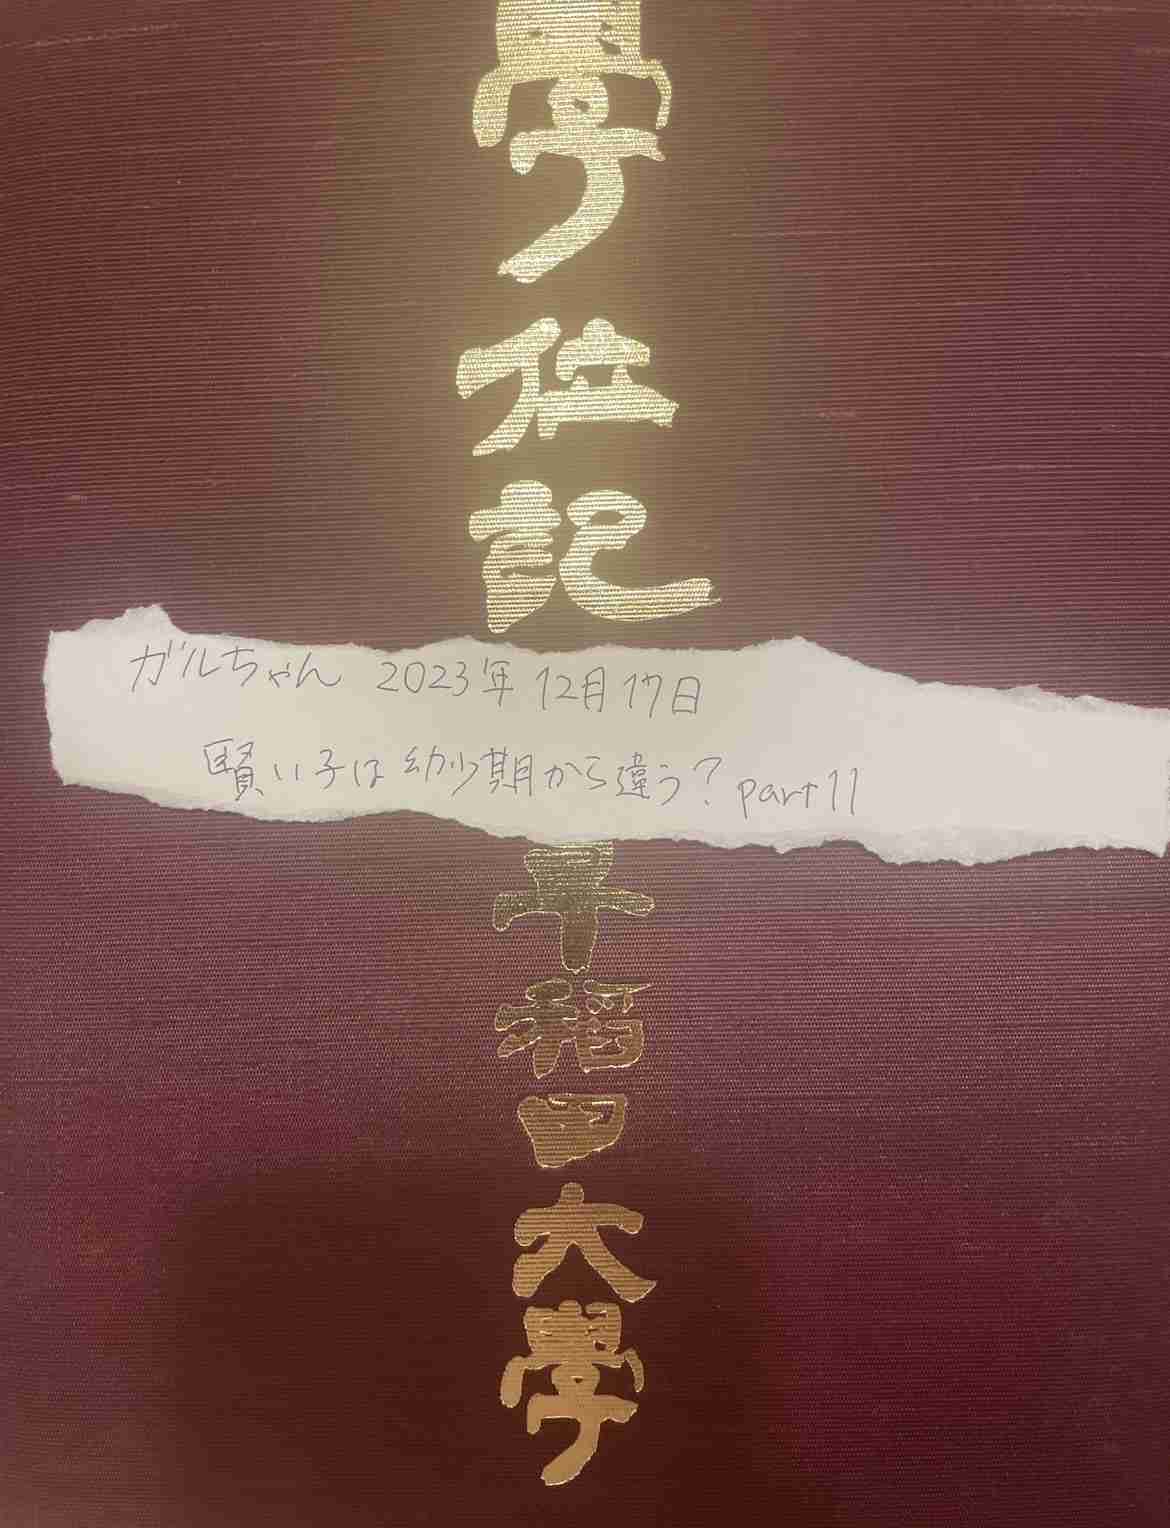 學位記
ガルちゃん 2023年12月17日
賢い子は幼少期から違う? part11
早稻田大學